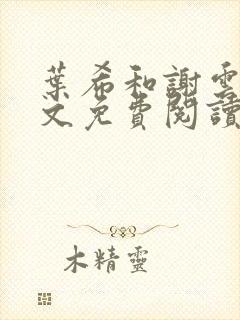 葉希和謝雲
文免費閱讀
木精靈